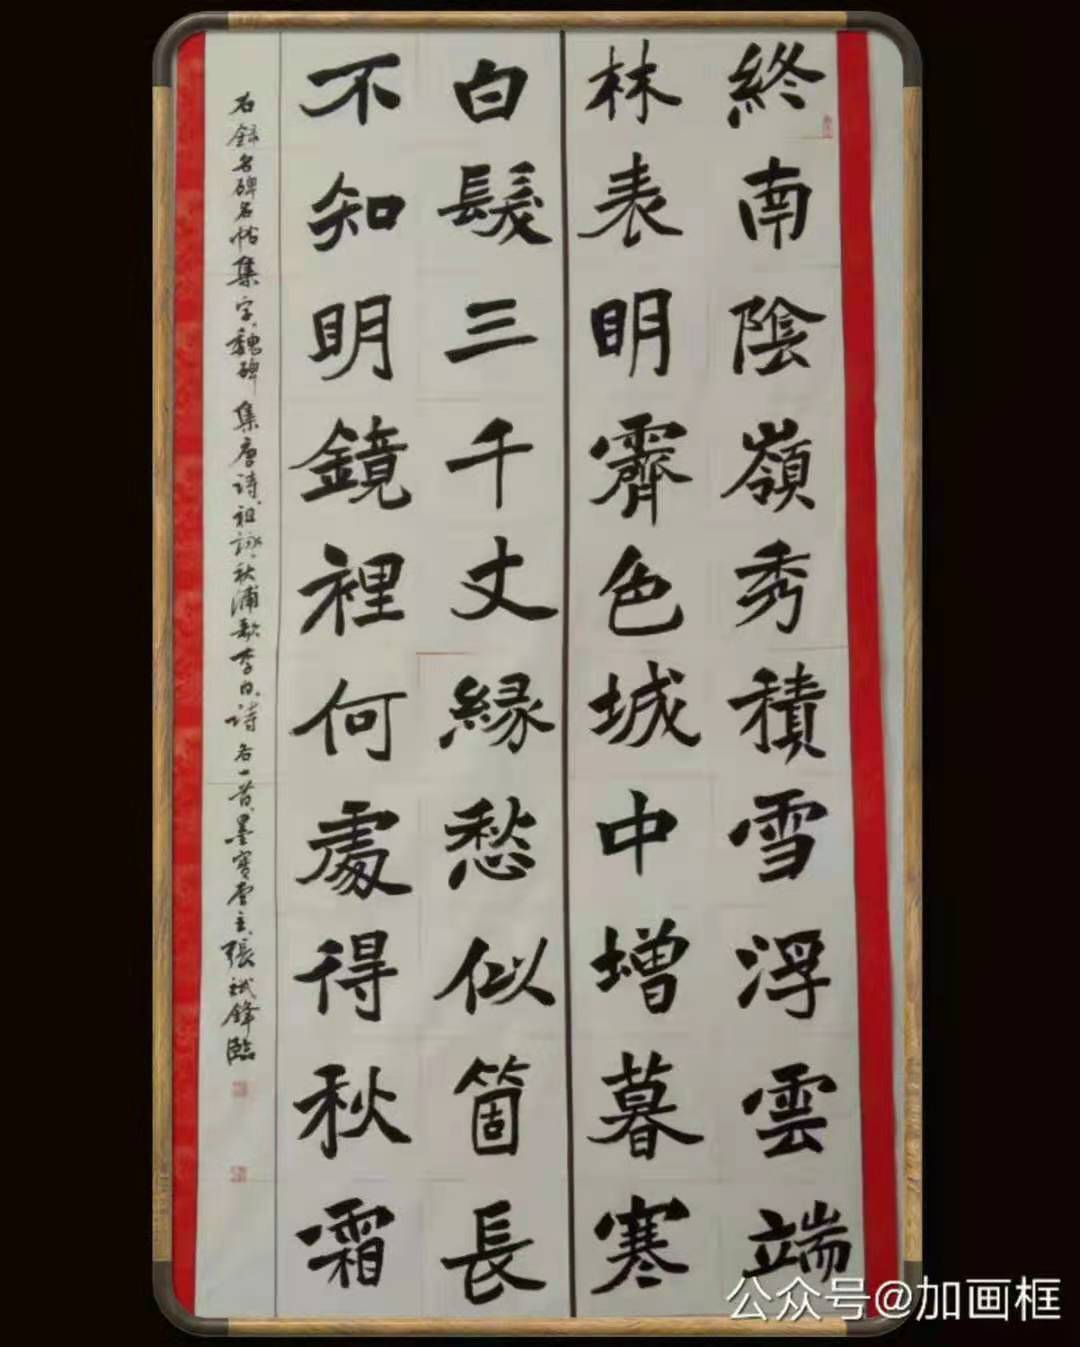 終南陰嶺秀積雪浮雲端
林表明霽色城中增暮寒
白髮三千丈緣愁似箇長
不知明鏡裡何處得秋霜
右錄名碑名帖集字魏碑集唐诗祖詠秋浦歌李白诗各一首墨寶雲主張斌鋒臨
公众号@加画框